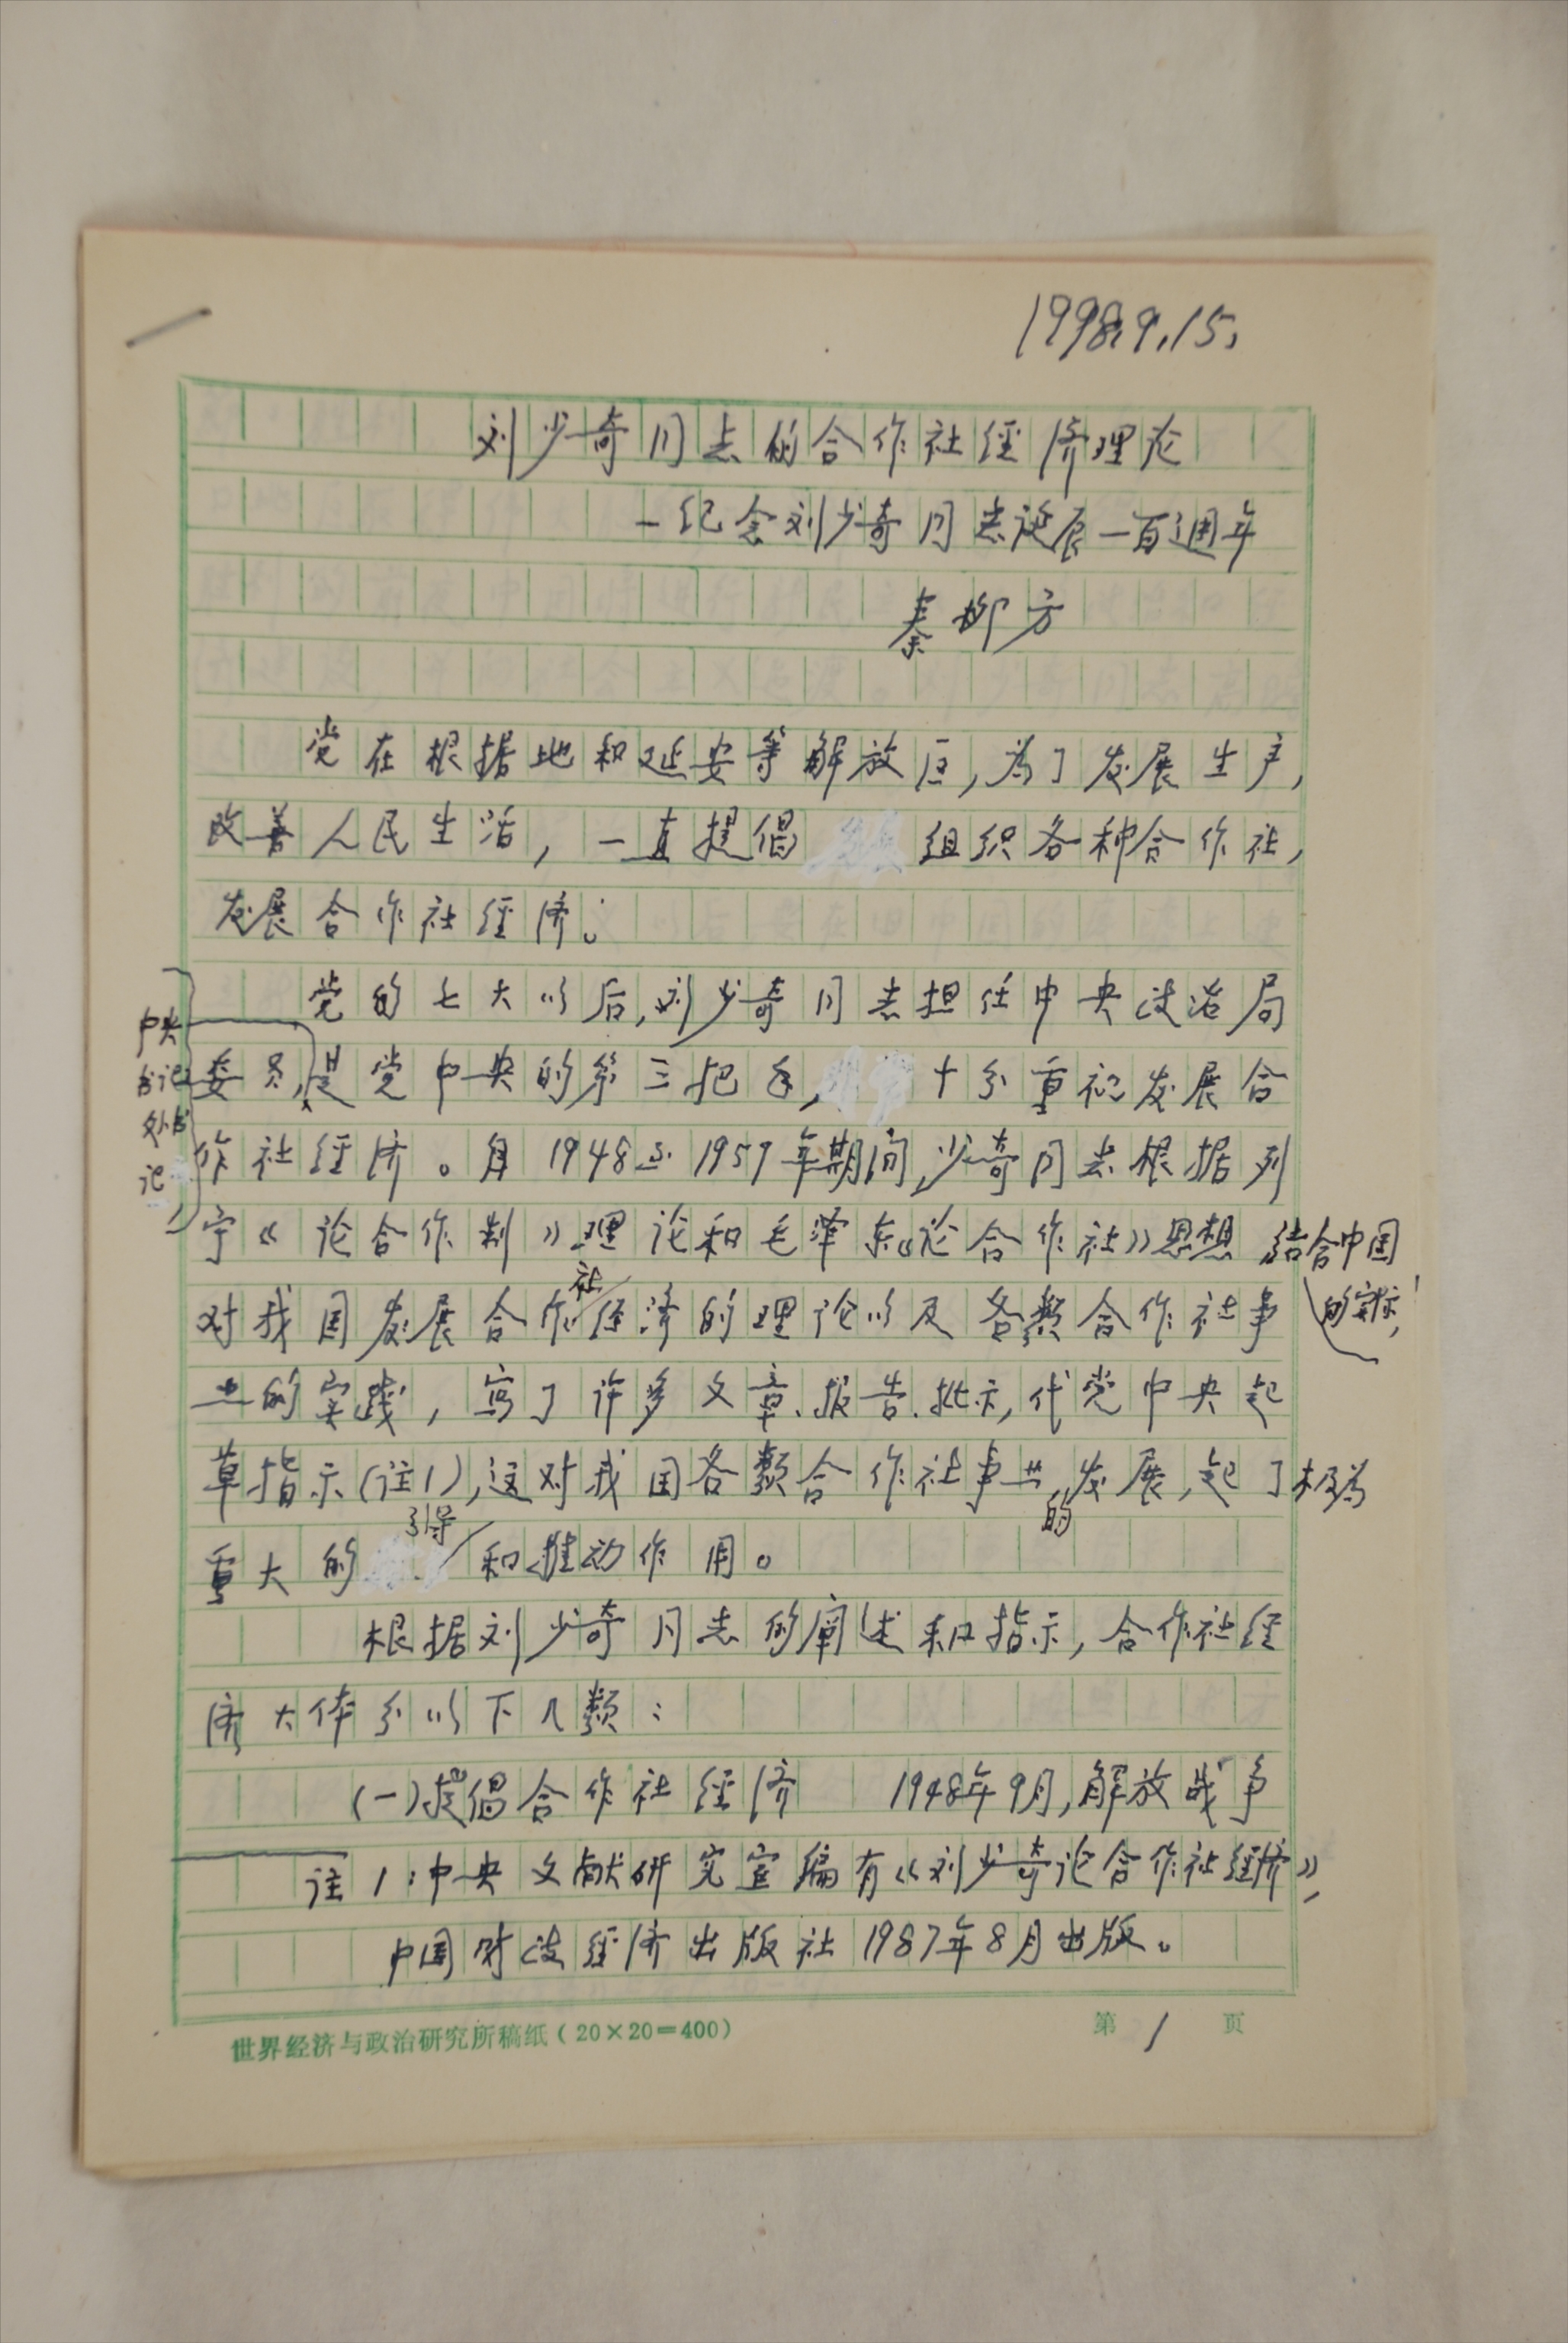 1998.9.15.
刘少奇同志的合作社经济理论
—纪念刘少奇同志诞辰一百週年
秦柳方
党在根据地和延安等解放区,为了发展生产,
改善人民生活,一直提倡组织各种合作社,
发展合作社经济。
党的七大以后,刘少奇同志担任中央政治局
中央书记处书记,
委员,是党中央的第三把手,十分重视发展合
作社经济。自1948至1957年期间,少奇同志根据列
宁《论合作制》理论和毛泽东《论合作社》思想 结合中国的实际,
对我国发展合作社经济的理论以及各类合作社事
业的实践,写了许多文章、报告、批示,代党中央起
草指示(注1),这对我国各类合作社事业的发展,起了极为
重大的引导和推动作用。
根据刘少奇同志的阐述和指示,合作社经
济大体分以下几类:
(一)提倡合作社经济 1948年9月,解放战争
注1:中央文献研究室编有《刘少奇论合作社经济》,
中国财政经济出版社1987年8月出版。
世界经济与政治研究所稿纸(20×20=400) 第 1 页